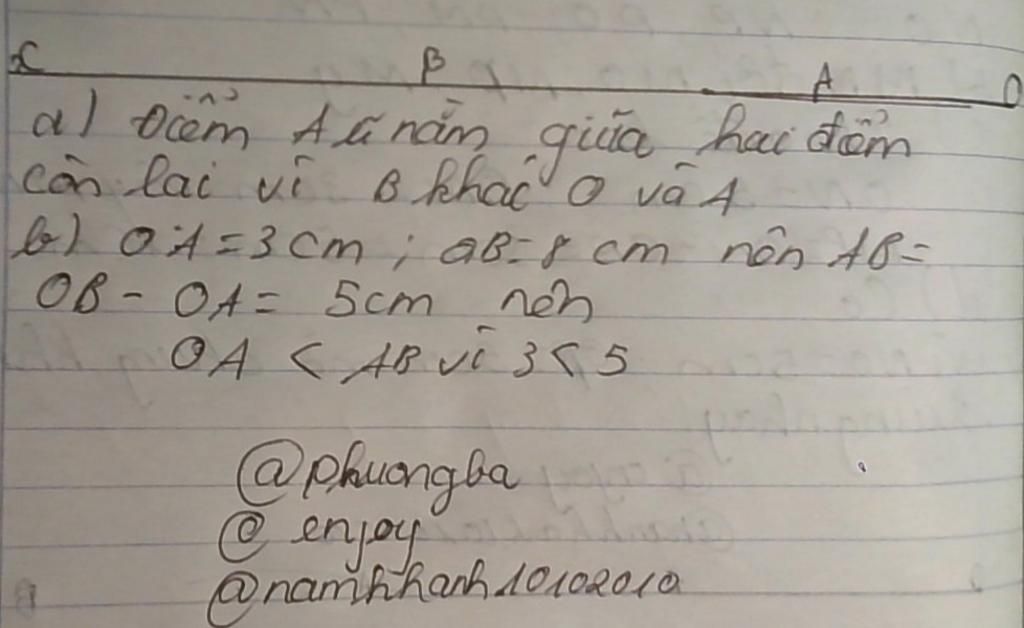 x B A O
a) Điểm A nằm giữa hai điểm
còn lại vì B khác O và A
b) OA = 3 cm ; OB = 8 cm nên AB =
OB - OA = 5cm nên
OA < AB vì 3 < 5
@phuongba
@ enjoy
@namkhanh10102010